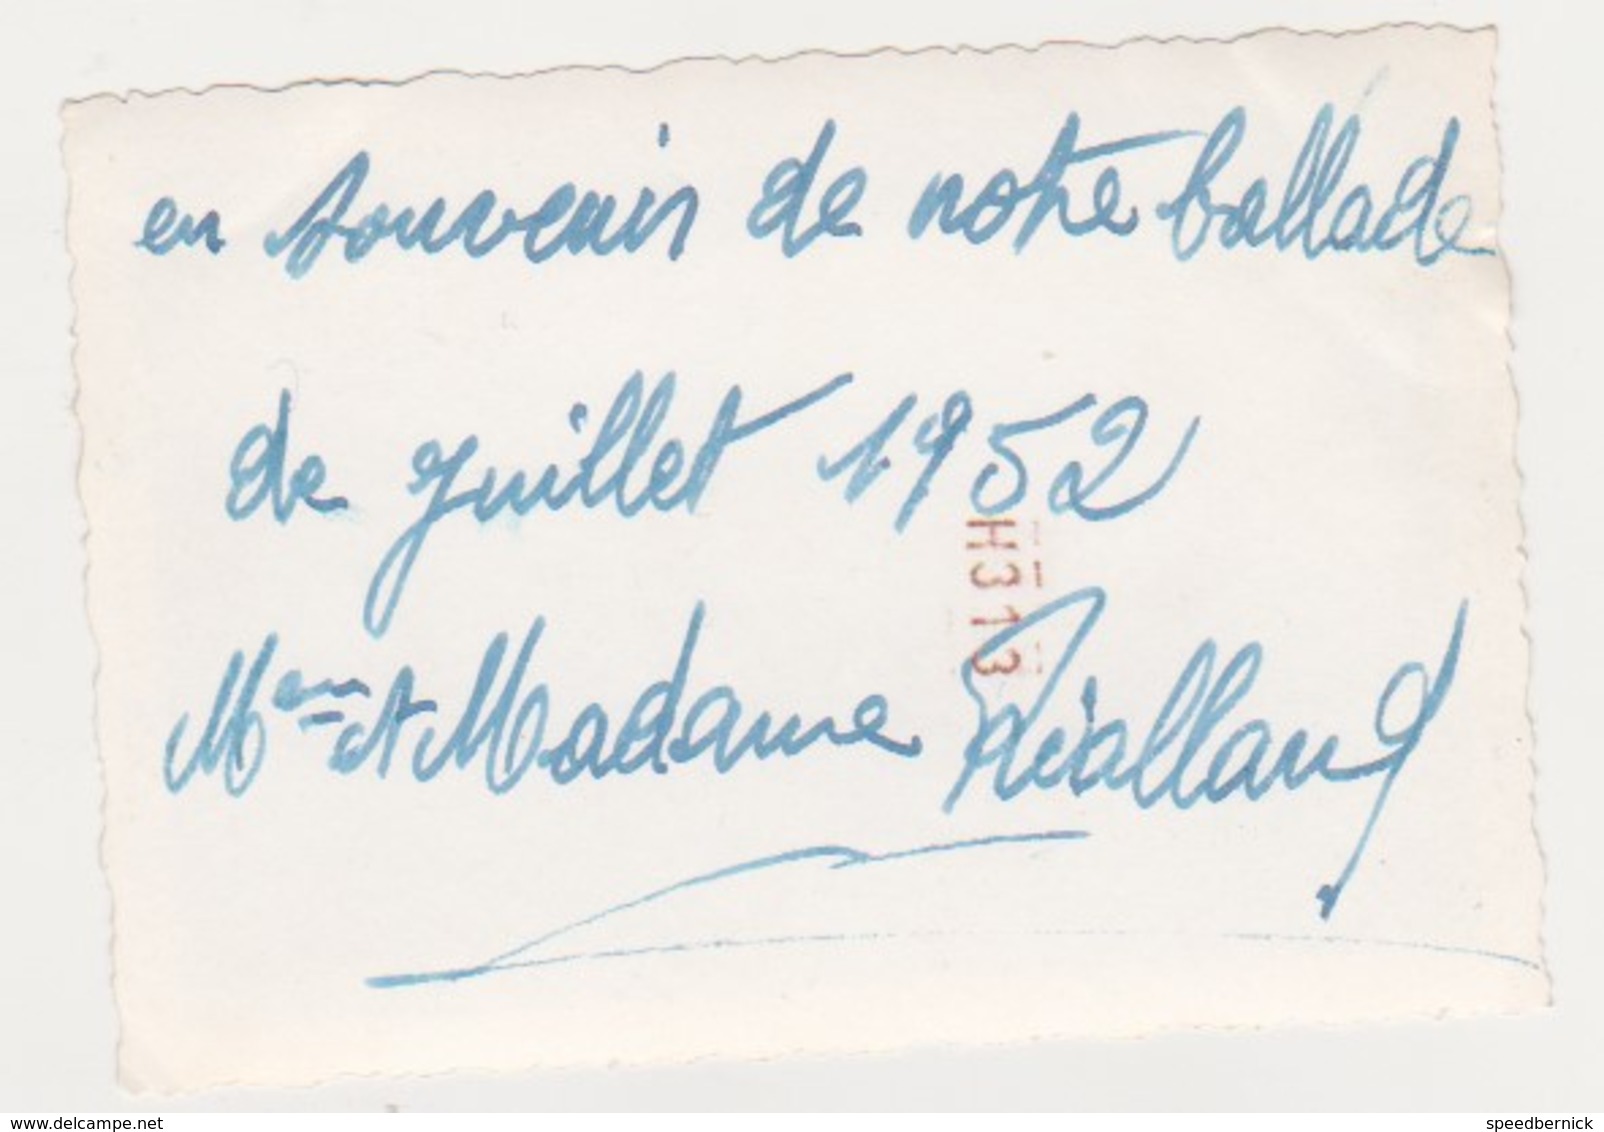 en souvenir de notre ballade
de juillet 1952
H313
Mr et Madame Rialland
delcampe.net
speedbernick